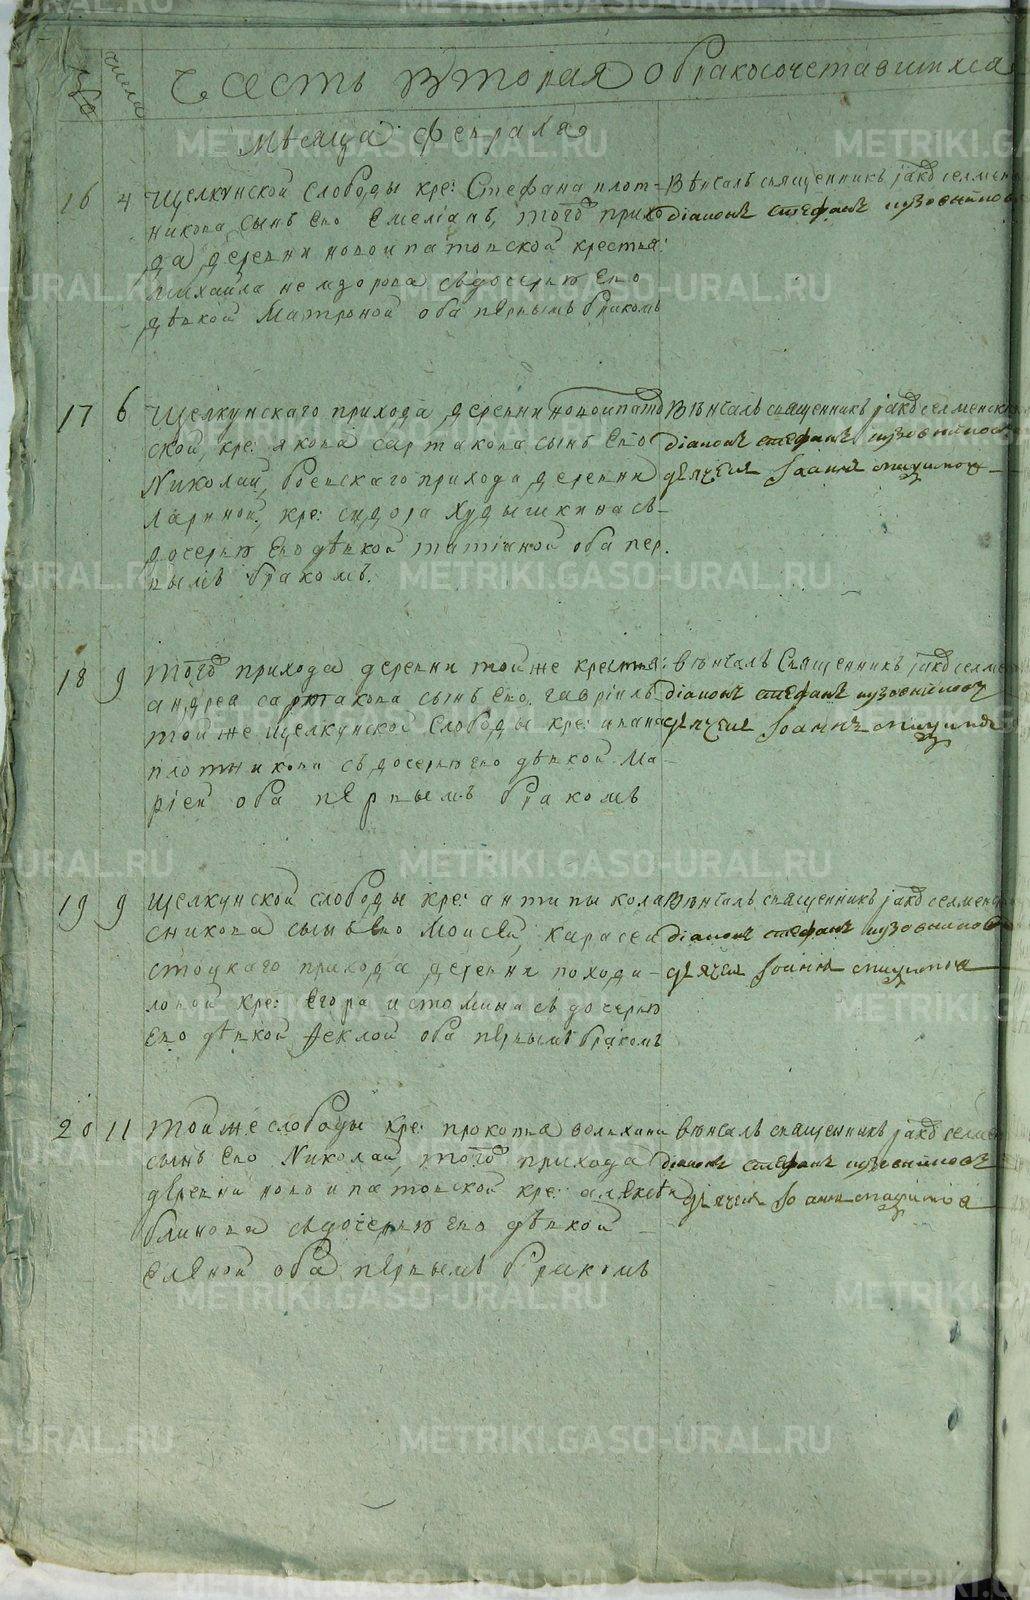 №
числа
Часть вторая о бракосочетавшихся
Месяца февраля
16 4 Щелкунской слободы кре: Стефана плот=
никова сынъ Ево Емелiанъ, того прихо
да деревни новоипатовской крестья:
Михаила немзорова съдочерью Ево
девкой Матроной оба первымъ бракомъ
Венчалъ священникъ
дiаконъ стефанъ
17 6 Щелкунскаго прихода деревни новоипато
ской, кре: якова сартакова сынъ Ево
Николай, боевскаго прихода деревни
Лариной, кре: сидора худышкина съ=
дочерью Ево девкой татiаной оба пер.
вымъ бракомъ.
Венчалъ священникъ
дiаконъ стефанъ
дячекъ Iоаннъ
18 9 того прихода деревни тойже крестья:
андреа сартакова сынъ Ево, гаврiилъ
тойже щелкунской слободы кре: ивана
плотникова съдочерью ево девкой Ма=
рiей оба первымъ бракомъ
венчалъ Священникъ
дiаконъ стефанъ
дячекъ Iоаннъ
19 9 щелкунской слободы кре: антипы кола
сникова сынъ Ево Моисей, карасеи
стоцкаго прихода деревни походи=
ловой кре: Егора истомина съдочерью
Ево девкой Феклой оба первымъ бракомъ
Венчалъ священникъ
дiаконъ стефанъ
дячекъ Iоаннъ
20 11 Тойже слободы кре: прокопья волихина
сынъ Ево Николай, того прихода
деревни новоипатовской кре: алексея
блинова съдочерью Ево девкой
Еленой оба первымъ бракомъ
венчалъ священникъ
дiаконъ стефанъ
дячекъ Iоаннъ
METRIKI.GASO-URAL.RU